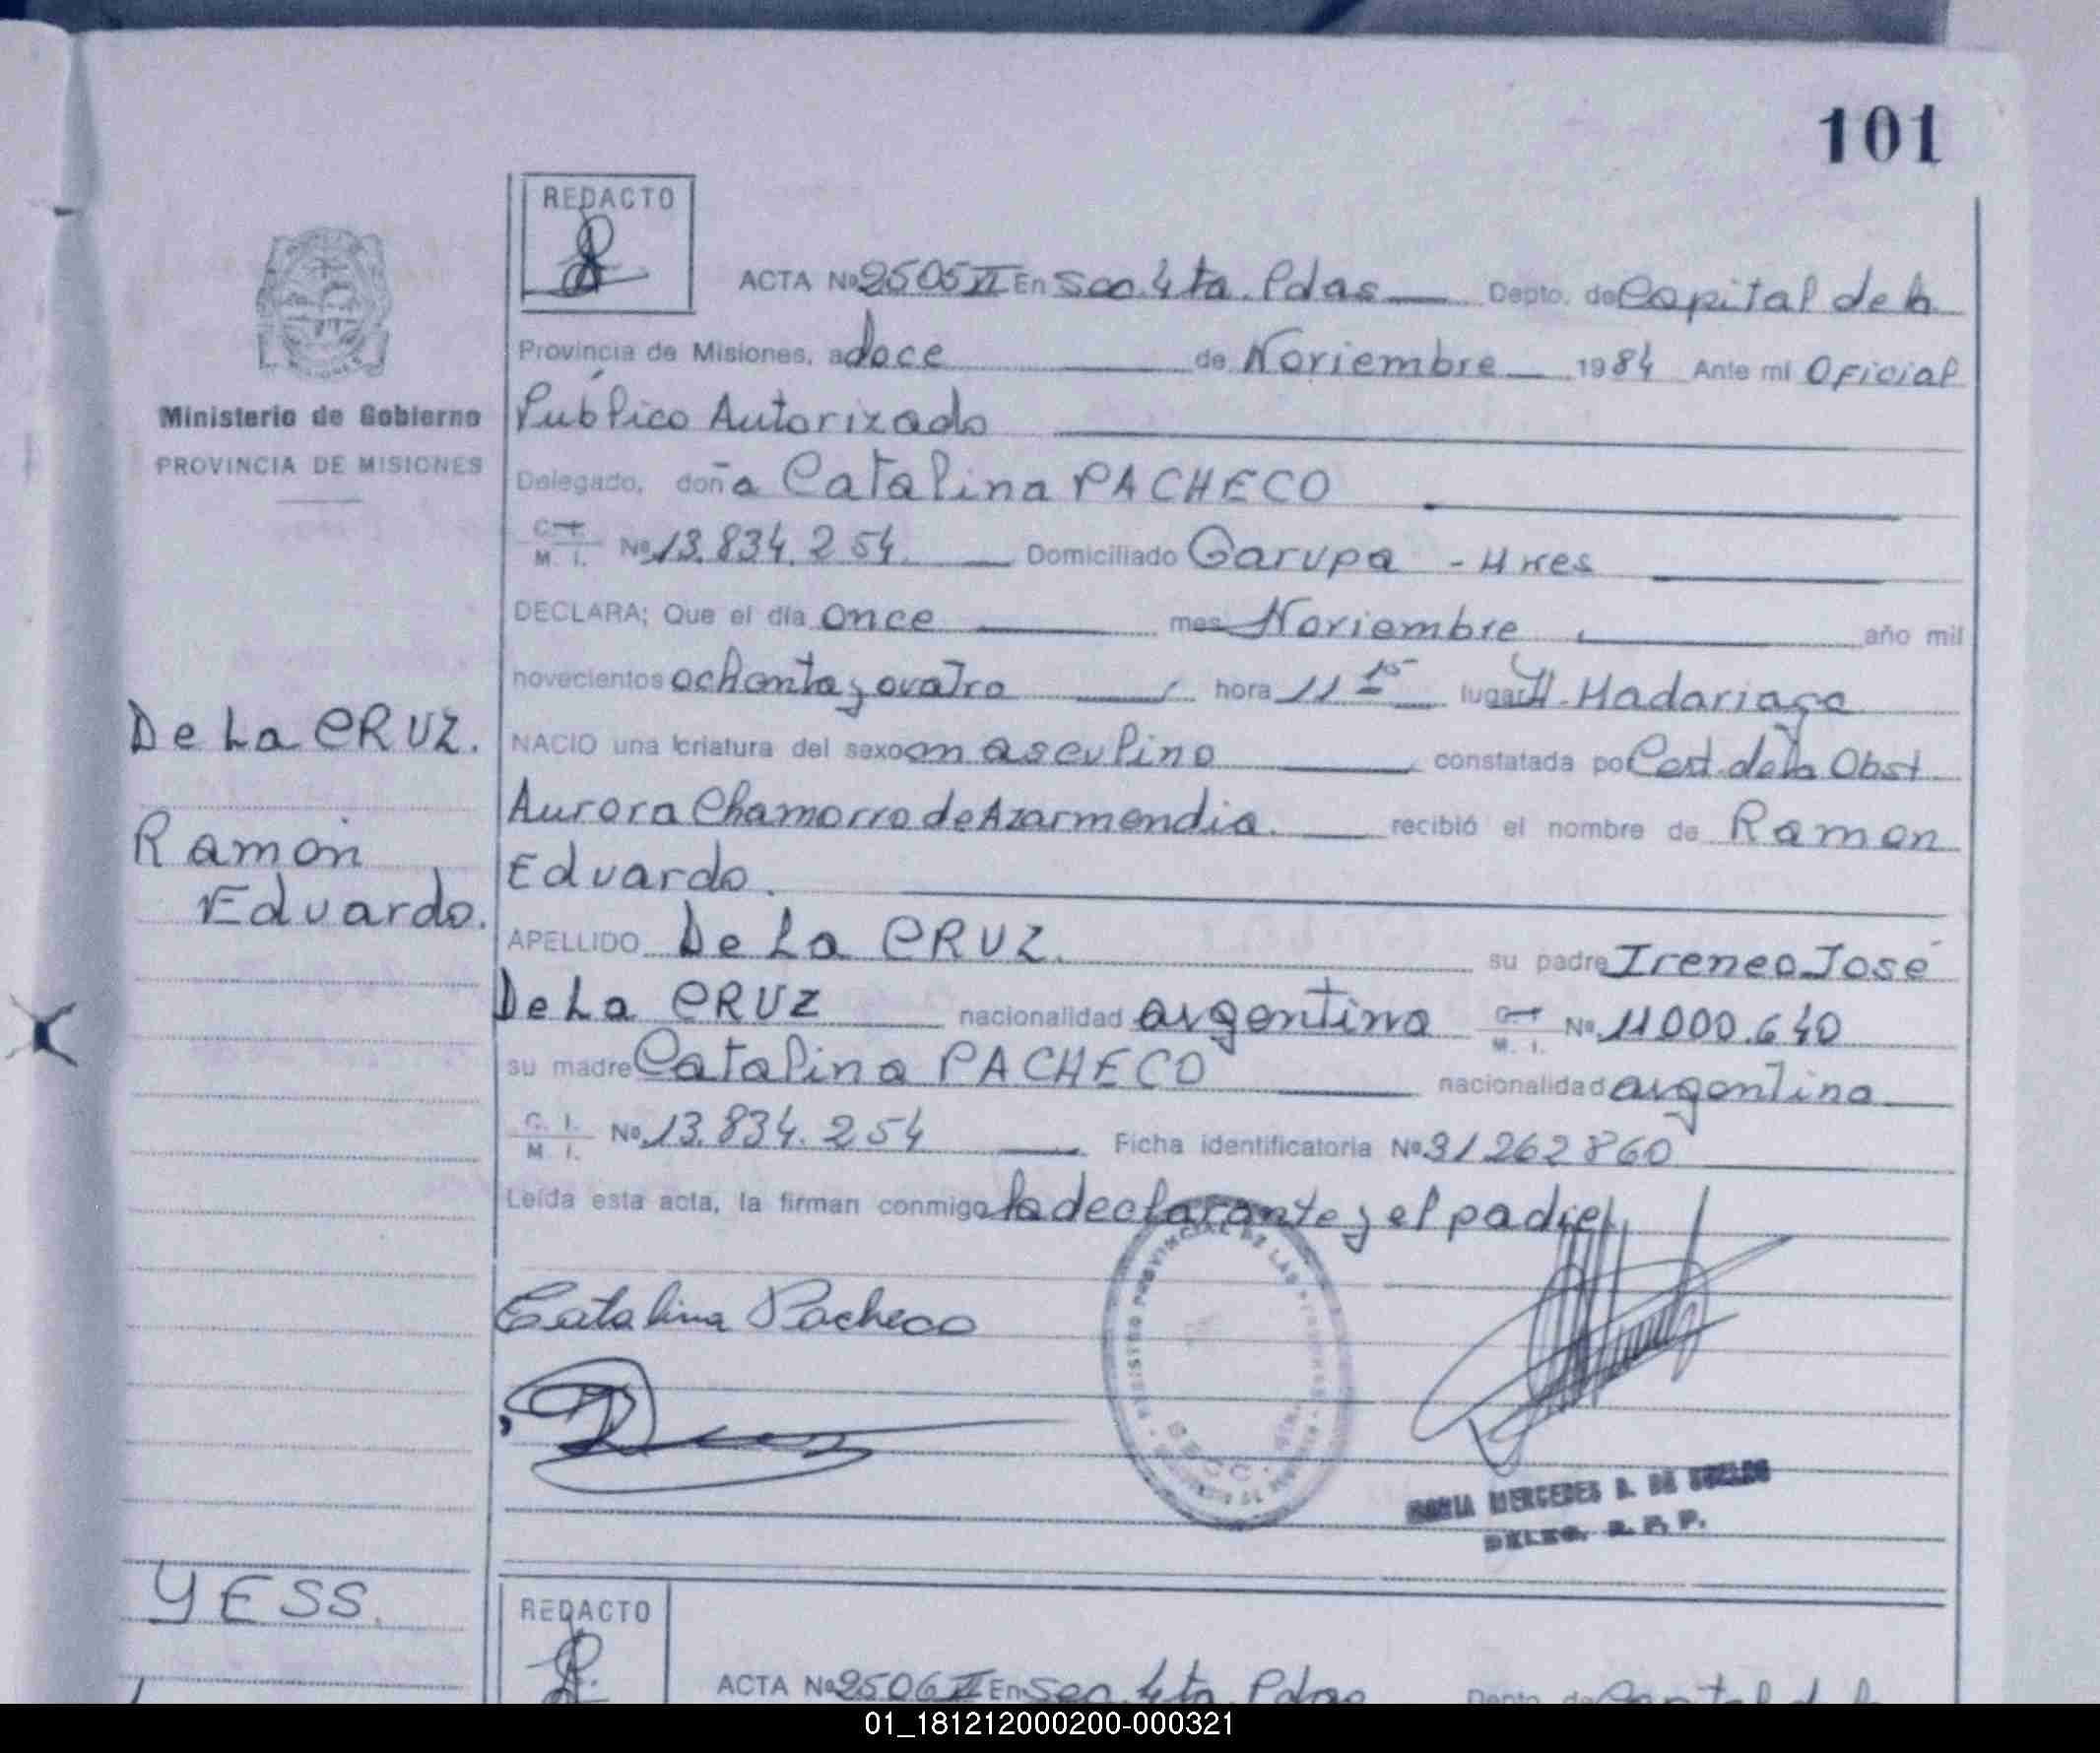 101
REDACTO
ACTA Nº 2505 II En Sec. 4ta. Pdas Depto. de Capital de la
Provincia de Misiones, a doce de Noviembre 1984 Ante mí Oficial
Ministerio de Gobierno
Público Autorizado
PROVINCIA DE MISIONES
Delegado, doña Catalina PACHECO
C. I.
M. I. Nº 13.834.254. Domiciliado Garupa - Mnes
DECLARA; Que el día once mes Noviembre año mil
novecientos ochenta y cuatro hora 11 15 lugar H. Madariaga
De La CRUZ.
NACIO una criatura del sexo masculino constatada por Cert. de la Obst
Aurora Chamorro de Azarmendia. recibió el nombre de Ramon
Ramón
Eduardo.
Eduardo.
APELLIDO De La CRUZ. su padre Ireneo José
De La CRUZ nacionalidad argentino C. I. M. I. Nº 11000.640
su madre Catalina PACHECO nacionalidad argentina
C. I.
M. I. Nº 13.834.254 Ficha identificatoria Nº 31262860
Leída esta acta, la firman conmigo la declarante y el padre
Catalina Pacheco
REGISTRO PROVINCIAL DE LAS PERSONAS
MARIA MERCEDES D. DE
DELEG. R. P. P.
YESS.
REDACTO
ACTA Nº 2506 II En Sec. 4ta. Pdas Depto. de Capital de la
01_181212000200-000321